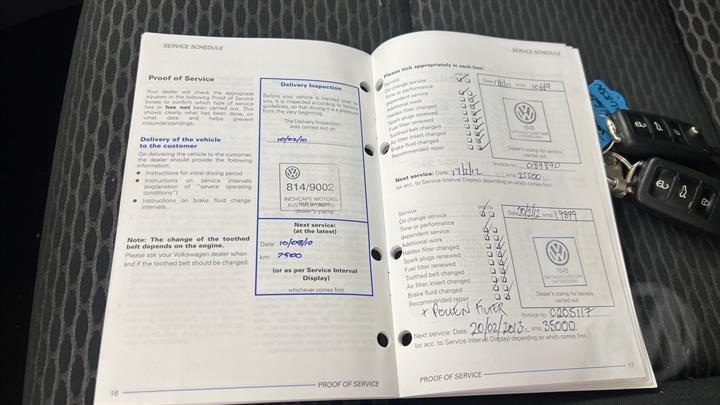 SERVICE SCHEDULE
Proof of Service
Your dealer will check the appropriate
squares in the following Proof of Service
boxes to confirm which type of service
has or has not been carried out. This
shows clearly what has been done, on
what date and helps prevent
misunderstandings.
Delivery of the vehicle
to the customer
On delivering the vehicle to the customer,
the dealer should provide the following
information:
Instructions for initial driving period
Instructions on service intervals
(explanation of "severe operating
conditions")
Instructions on brake fluid change
intervals
Note: The change of the toothed
belt depends on the engine.
Please ask your Volkswagen dealer when
and if the toothed belt should be changed.
Delivery Inspection
Before your vehicle is handed over to
you, it is inspected according to factory
guidelines, so that driving it is safe
from the very beginning.
The Delivery Inspection
was carried out on:
10/03/10
814/9002
INCHCAPE MOTORS
dealer's stamp
Next service:
(at the latest)
Date: 10/08/10
km: 7500
(or as per Service Interval
Display)
whichever comes first
16
PROOF OF SERVICE
SERVICE SCHEDULE
Please tick appropriately in each line!
Service
Oil change service
Time or performance
dependent service
Additional work
Haldex filter changed
Spark plugs renewed
Fuel filter renewed
Toothed belt changed
Air filter insert changed
Brake fluid changed
Recommended repair
Date kms 10669
1649
Dealer's stamp for service
carried out.
Invoice no.: 0184890
Next service: Date: 17/2/12 kms: 25500
(or acc. to Service Interval Display) depending on which comes first
Service
yes no
Oil change service
Time or performance
dependent service
Additional work
Haldex filter changed
Spark plugs renewed
Fuel filter renewed
Toothed belt changed
Air filter insert changed
Brake fluid changed
Recommended repair
+ POLLEN FILTER
Date 20/2/12 kms 19879
1649
Dealer's stamp for service
carried out
Invoice no.: 0205117
Next service: Date: 20/02/2013 kms: 35000
(or acc. to Service Interval Display) depending on which comes first
PROOF OF SERVICE
17